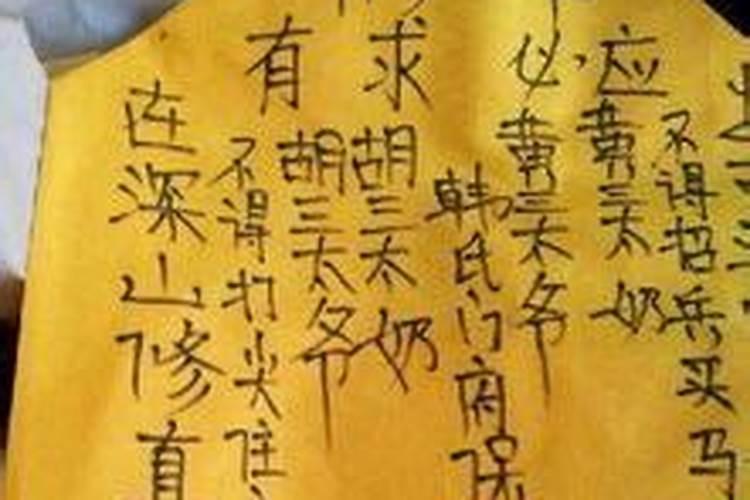 有求必应
在深山修真
不得打尖住
胡三太爷
胡三太奶
韩氏门府保
黄三太爷
黄三太奶
不得招兵买马